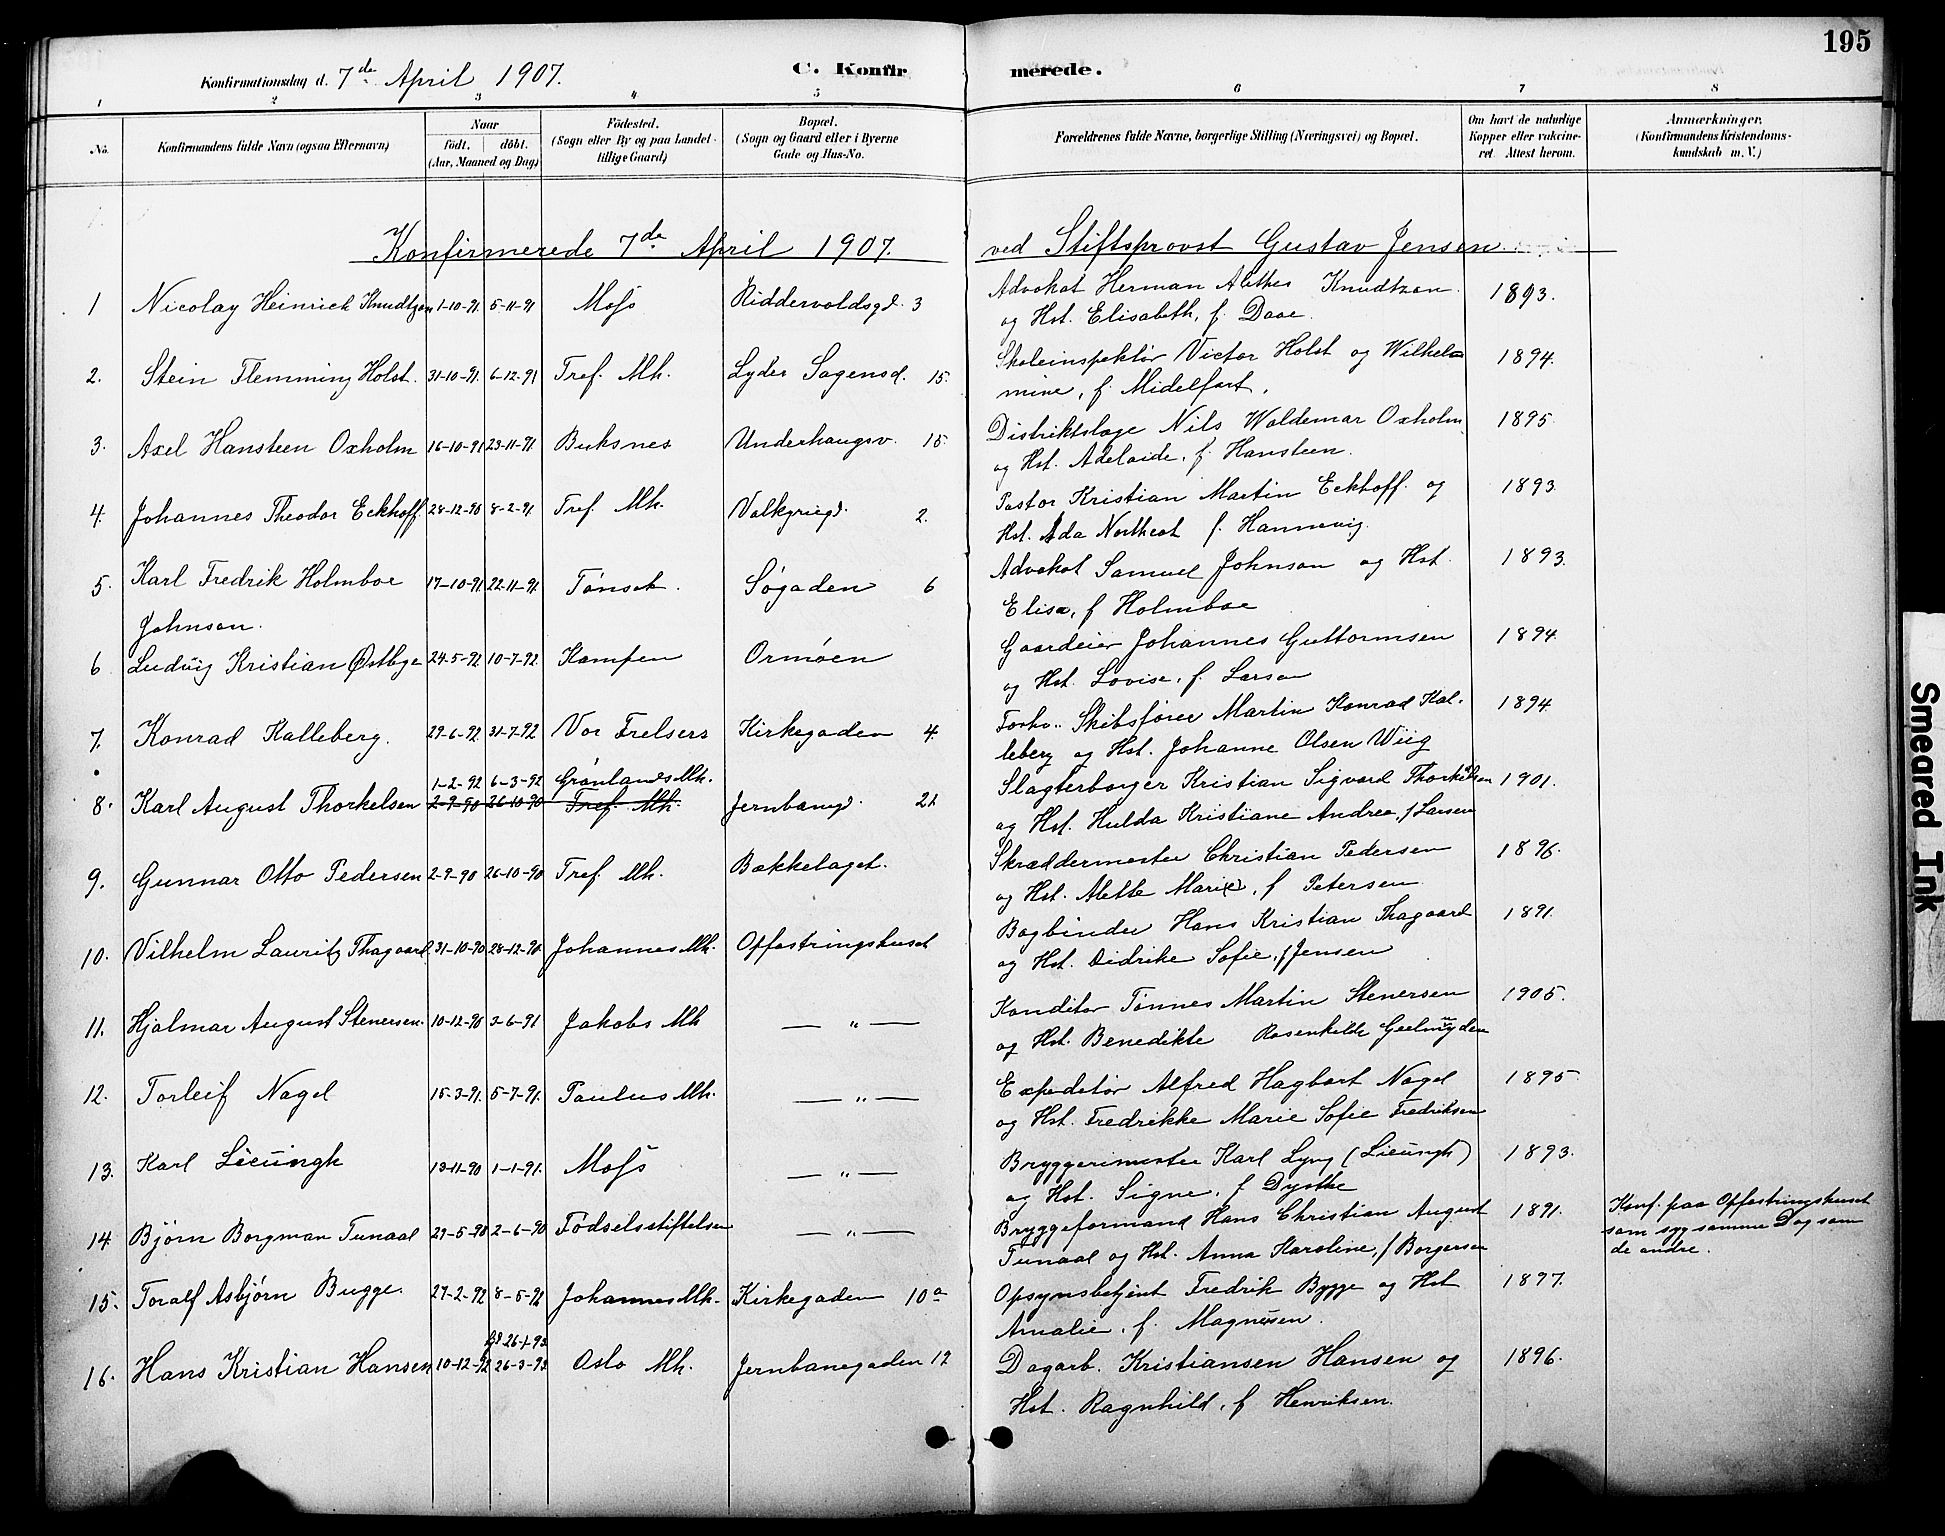 195
Konfirmationsdag d. 7de April 1907.
C. Konfirmerede.
1 2 3 4 5 6 7 8
No.
Konfirmandens fulde Navn (ogsaa Efternavn)
Naar
født. døbt.
(Aar, Maaned og Dag)
Fødested.
(Sogn eller By og paa Landet tillige Gaard)
Bopæl.
(Sogn og Gaard eller i Byerne Gade og Hus-No.
Forældrenes fulde Navne, borgerlige Stilling (Næringsvei) og Bopæl.
Om havt de naturlige Kopper eller vakcineret. Attest herom.
Anmærkninger.
(Konfirmandens Kristendomskundskab m. V.)
Konfirmerede 7de April 1907. ved Stiftsprovst Gustav Jensen
1 Nicolay Heinrich Knudtzon 1-10-91. 5-11-91 Moss Riddervoldsgd. 3 Advokat Herman Alethes Knudtzon 1893.
og Hst. Elisabeth, f. Daae.
2. Stein Flemming Holst. 31-10-91. 6-12-91 Tref. Mh. Lyder Sagensd. 15. Skoleinspektør Victor Holst og Wilhel- 1894.
mine, f. Midelfart.
3. Axel Hansteen Oxholm 16-10-91 23-11-91 Buksnes Underhaugsv. 15. Distriktslæge Nils Waldemar Oxholm 1895
og Hst. Adelaide, f. Hansteen.
4. Johannes Theodor Eckhoff 28-12-90 8-2-91 Tref. Mh. Valkyriegd. 2. Pastor Kristian Martin Eckhoff og 1893
Hst. Ada Northcot f. Hannevig.
5. Karl Fredrik Holmboe 17-10-91 22-11-91. Tønset. Søgaden 6 Advokat Samuel Johnson og Hst. 1893.
Johnson.
Elisa, f Holmboe
6 Ludvig Kristian Østbye 24-5-92 10-7-92 Kampen Ormøen Gaardeier Johannes Guttormsen 1894
og Hst. Lovise, f. Larsen
7. Konrad Kalleberg. 29-6-92 31-7-92 Vor Frelsers Kirkegaden 4. Forhv. Skibsfører Martin Konrad Kal- 1894
leberg og Hst. Johanne Olsen Wiig
1-2-92 6-3-92 Grønlands Mh.
8. Karl August Thorkelsen 2-9-90 26-10-90 Tref. Mh. Jernbangd. 21 Slagterborger Kristian Sigvard Thorkelsen 1901.
og Hst. Hulda Kristiane Andrea, f Larsen
9. Gunnar Otto Pedersen 2-9-90 26-10-90 Tref. Mh. Bækkelaget. Skræddermester Christian Pedersen 1896.
og Hst. Alette Marie, f Petersen
10. Vilhelm Lauritz Thagaard 31-10-90 28-12-90 Johannes Mh. Opfostringshuset Bogbinder Hans Kristian Thagaard 1891.
og Hst. Didrike Sofie, f Jensen
11. Hjalmar August Stenersen. 10-12-90 3-6-91 Jakobs Mh — " — Konditor Tønnes Martin Stenersen 1905.
og Hst. Benedikte Rosenkilde Geelmuyden
12. Torleif Nagel 15-3-91. 5-7-91. Paulus Mh. — " — Expeditør Alfred Hagbart Nagel 1895.
og Hst. Fredrikke Marie Sofie Fredriksen
13. Karl Lieungh 13-11-90 1-1-91. Moss — " — Bryggerimester Karl Lyng (Lieungh) 1893.
og Hst. Signe, f Dysthe
14. Bjørn Borgman Tunaal 29-5-90 2-6-90 Fødselsstiftelsen — " — Bryggeformand Hans Christian August 1891. Konf. paa Opfostringshuset
Tunaal og Hst. Anna Karoline, f Borgersen som syg samme Dag som
de andre.
15. Toralf Asbjørn Bugge. 27-2-92 8-5-92 Johannes Mh. Kirkegaden 10a Opsynsbetjent Fredrik Bygge og Hst 1897.
Amalie, f. Magnusen.
26-1-93
16. Hans Kristian Hansen 10-12-92 26-3-93 Oslo Mh. Jernbanegaden 12 Dagarb. Kristiansen Hansen og 1896.
Hst. Ragnhild, f Henriksen.
Smeared Ink